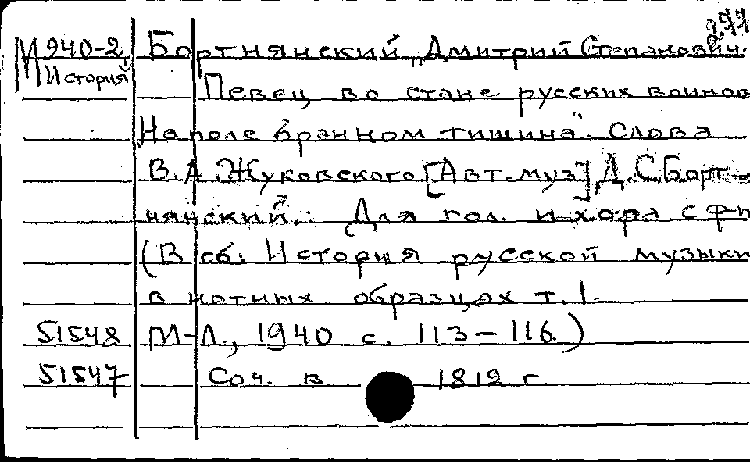 М940-2 Бортнянский, Дмитрий Степанович.
История Певец во стане русских воинов
"На поле бранном тишина". Слова
В.А. Жуковского [Авт. муз.] Д.С. Борт-
нянский. Для гол. и хора с фп
(В сб: История русской музыки
в нотных образцах т. 1
51548 М-Л., 1940 с. 113-116.)
51547 Соч. в 1812 г